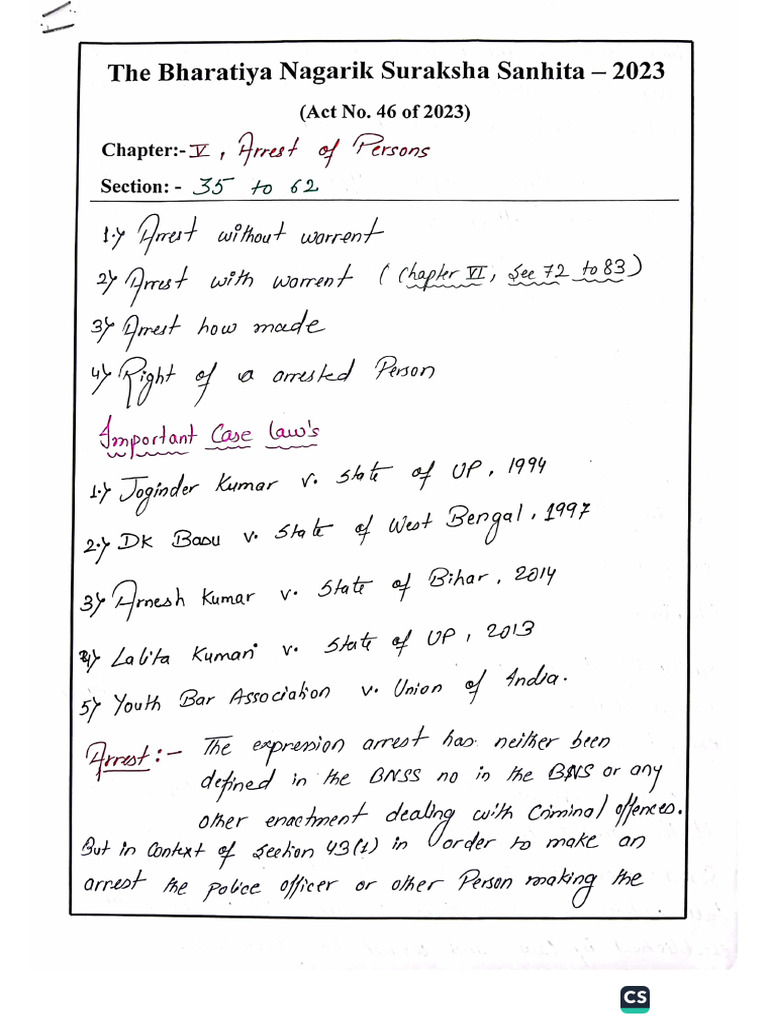 The Bharatiya Nagarik Suraksha Sanhita – 2023
(Act No. 46 of 2023)
Chapter:- V, Arrest of Persons
Section: - 35 to 62
1.) Arrest without warrent
2) Arrest with warrent ( Chapter VI, See 72 to 83)
3) Arrest how made
4) Right of a arrested Person
Important Case law's
1.) Joginder Kumar v. State of UP, 1994
2.) DK Basu v. State of West Bengal, 1997
3) Arnesh Kumar v. State of Bihar, 2014
4) Lalita Kumari v. State of UP, 2013
5) Youth Bar Association v. Union of India.
Arrest:- The expression arrest has neither been
defined in the BNSS no in the BNS or any
other enactment dealing with Criminal offences.
But in Context of Section 43(1) in order to make an
arrest the police officer or other Person making the
CS